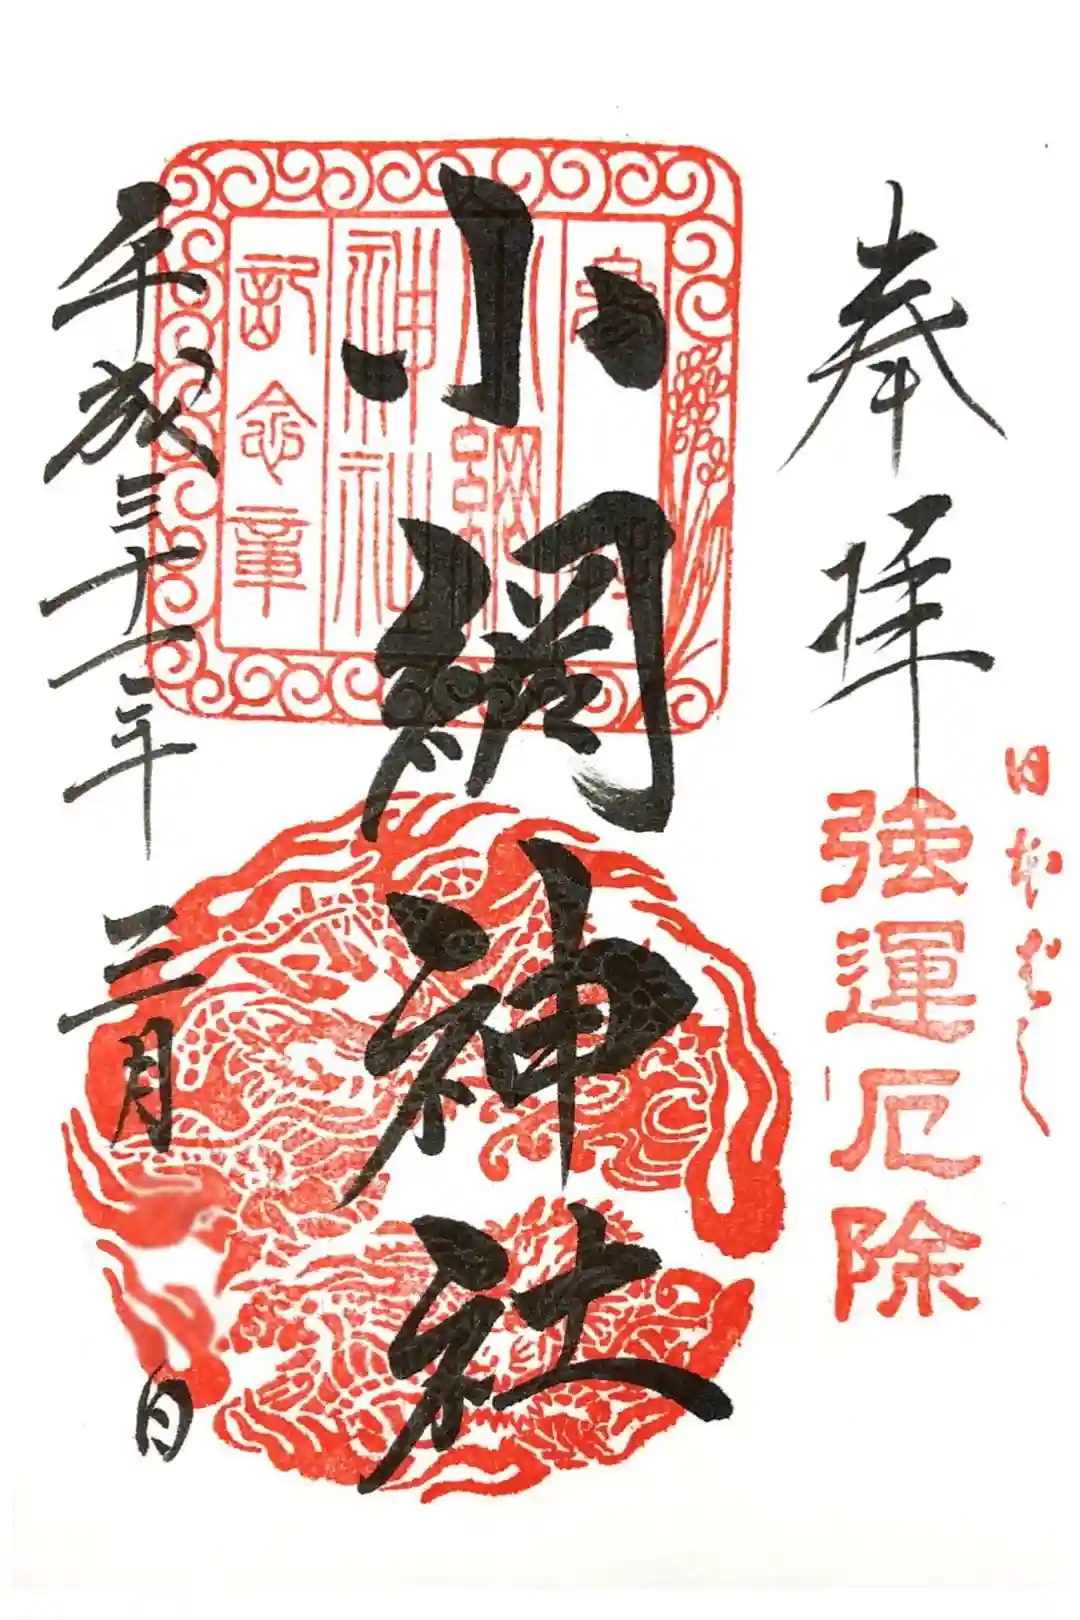 奉拝
日本ばし
強運厄除
小網神社
参拝
小網
神社
記念章
平成三十一年三月 日